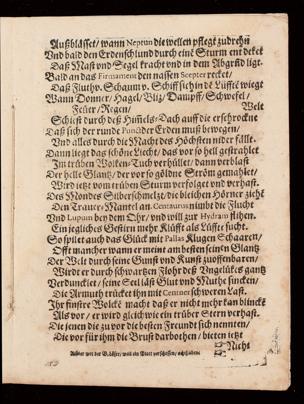 Außblässet / wann Neptun die wellen pflegt zudrehn
Und bald den Erdenschlund durch eine Sturm entdeket
Daß Mast vnd Segel kracht vnd in dem Abgrūd ligt.
Bald an das Firmament den nassen Scepter recket /
Daß Fluth v. Schaum v. Schiff sich in die Lüffte wiegt
Wann Donner / Hagel / Bliz / Dampff / Schwefel /
Feüer / Regen / Welt
Schiest durch deß Hiṁels-Dach auff die erschrockne
Daß sich der runde Punct der Erden muß bewegen /
Und alles durch die Macht des Höchsten nider fällt.
Dann liegt das schöne Liecht das vor so hell gestrahlet
Im trüben Wolken-Tuch verhüllet / dann verblast
Der helle Glantz / der vor so göldne Ström gemahlet /
Wird jetzt vom trüben Sturm verfolget vnd verhast.
Des Mondes Silberschmelz / die bleichen Hörner zieht
Den Traurer Mantel an. Centaurus nimbt die Flucht
Und Lupum bey dem Ohr / vnd will zur Hydram flihen.
Ein jegliches Gestirn mehr Klüfft als Lüffte sucht.
So spilet auch das Glück mit Pallas Klugen Schaaren /
Offt mancher wann er meint am besten seinen Glantz
Der Welt durch seine Gunst vnd Kunst zuoffenbaren /
Wirdt er durch schwartzen Flohr deß Unglükes gantz
Verdunckler / seine Seel läst Glut vnd Muthe sincken /
Die Armuth trückt ihn mit Centner schweren Last.
Ihr finstre Wolcke macht daß er nicht mehr kan blincke
Als vor / er wird gleich wie ein trüber Stern verhast.
Die jenen die zu vor die besten Freundt sich nennten /
Die vor für ihm die Brust darbothen / bieten jetzt
Nicht